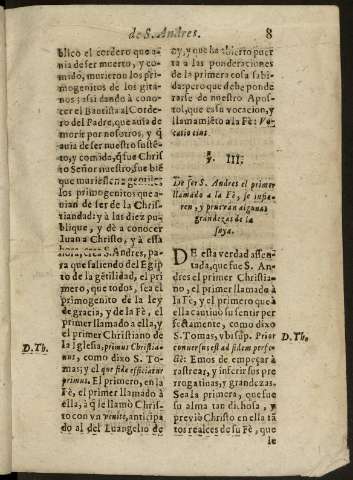 de S. Andres. 8
blico el cordero que a-
uia de ser muerto, y co-
mido, murieron los pri-
mogenitos de los gita-
nos; assi dando à cono-
cer el Bautista al Corde-
ro del Padre, que auia de
morir por nosotros, y q̃
auia de ser nuestro suste-
to, y comida, q̃ fue Chris-
to Señor nuestro, fue biẽ
que muriessen gentiles
los primogenitos que a-
uian de ser de la Chris-
tiandad; y à las diez pu-
blique, y dè a conocer
Iuan a Christo, y à essa
hora, cree S. Andres, pa-
ra que saliendo del Egip
to de la gẽtilidad, el pri-
mero, que todos, sea el
primogenito de la ley
de gracia, y de la Fè, el
primer llamado a ella, y
el primer Christiano de
la Iglesia, primus Christia-
nus, como dixo S. To-
mas; y el que fide efficiatur
primus. El primero, en la
Fè, el primer llamado à
ella, à q̃ le llamò Chris-
to con vn venite, anticipa
do al del Euangelio de
D. Th.
oy, y que ha abierto puer
ta a las ponderaciones
de la primera cosa sabi-
da: pero que debe ponde
rarse de nuestro Apos-
tol, que es su vocacion, y
llamamiẽto a la Fè: Vo-
catio eius.
§. III.
De ser S. Andres el primer
llamado a la Fè, se infie-
ren, y prueuan algunas
grandezas de la
suya.
DE esta verdad assen-
tada, que fue S. An-
dres el primer Christia-
no, el primer llamado à
la Fè, y el primero que à
ella cautiuò su sentir per
fectamente, como dixo
S. Tomas, vbi sup. Prior
conuersus est ad fidem perfe-
ctè: Emos de empeçar à
rastrear, y inferir sus pre
rrogatiuas, y grandezas.
Sea la primera, que fue
su alma tan dichosa, y
previò Christo en ella tã
tos realces de su Fè, que
D. Th.
le